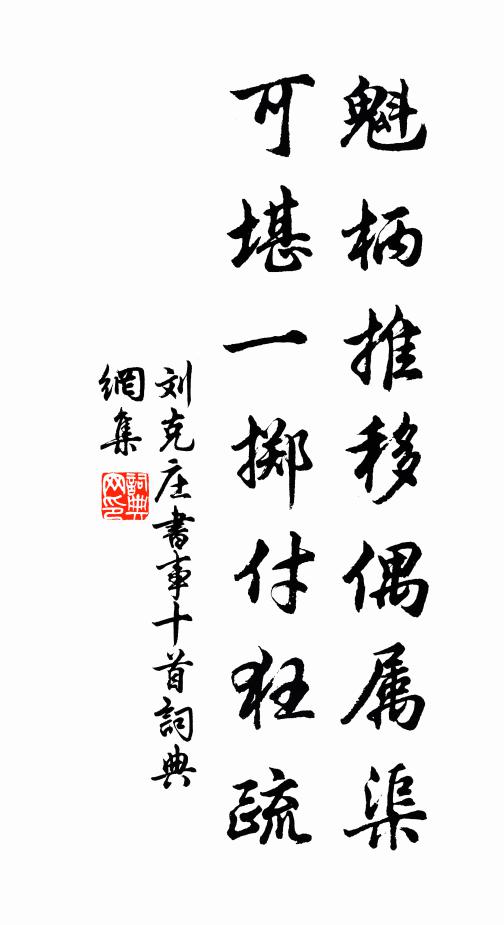 魁柄推移偶属渠
可堪一掷付狂疏
刘克庄書事十首詞典
網集
詞典
网印